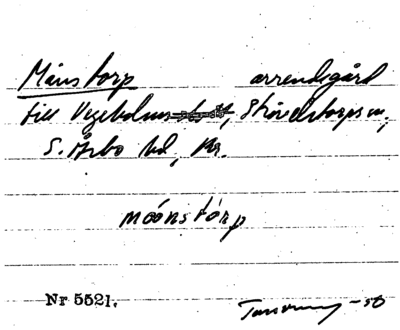 Månstorp arrendegård
till Vegeholms, Strövelstorps sn,
S. Åsbo hd, Kr.
móånstórp
Nr 5521.
-50